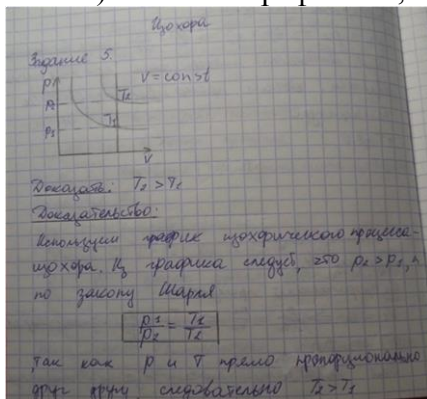 Изохора
Задание 5.
P
V = const
P₂
T₂
P₁
T₁
V
Доказать: T₂ > T₁
Доказательство:
Используем график изохорического процесса-
изохора. Из графика следует, что p₂ > p₁, и
по закону Шарля
p1/p2 = T1/T2
так как p и T прямо пропорциональны
друг другу, следовательно T₂ > T₁